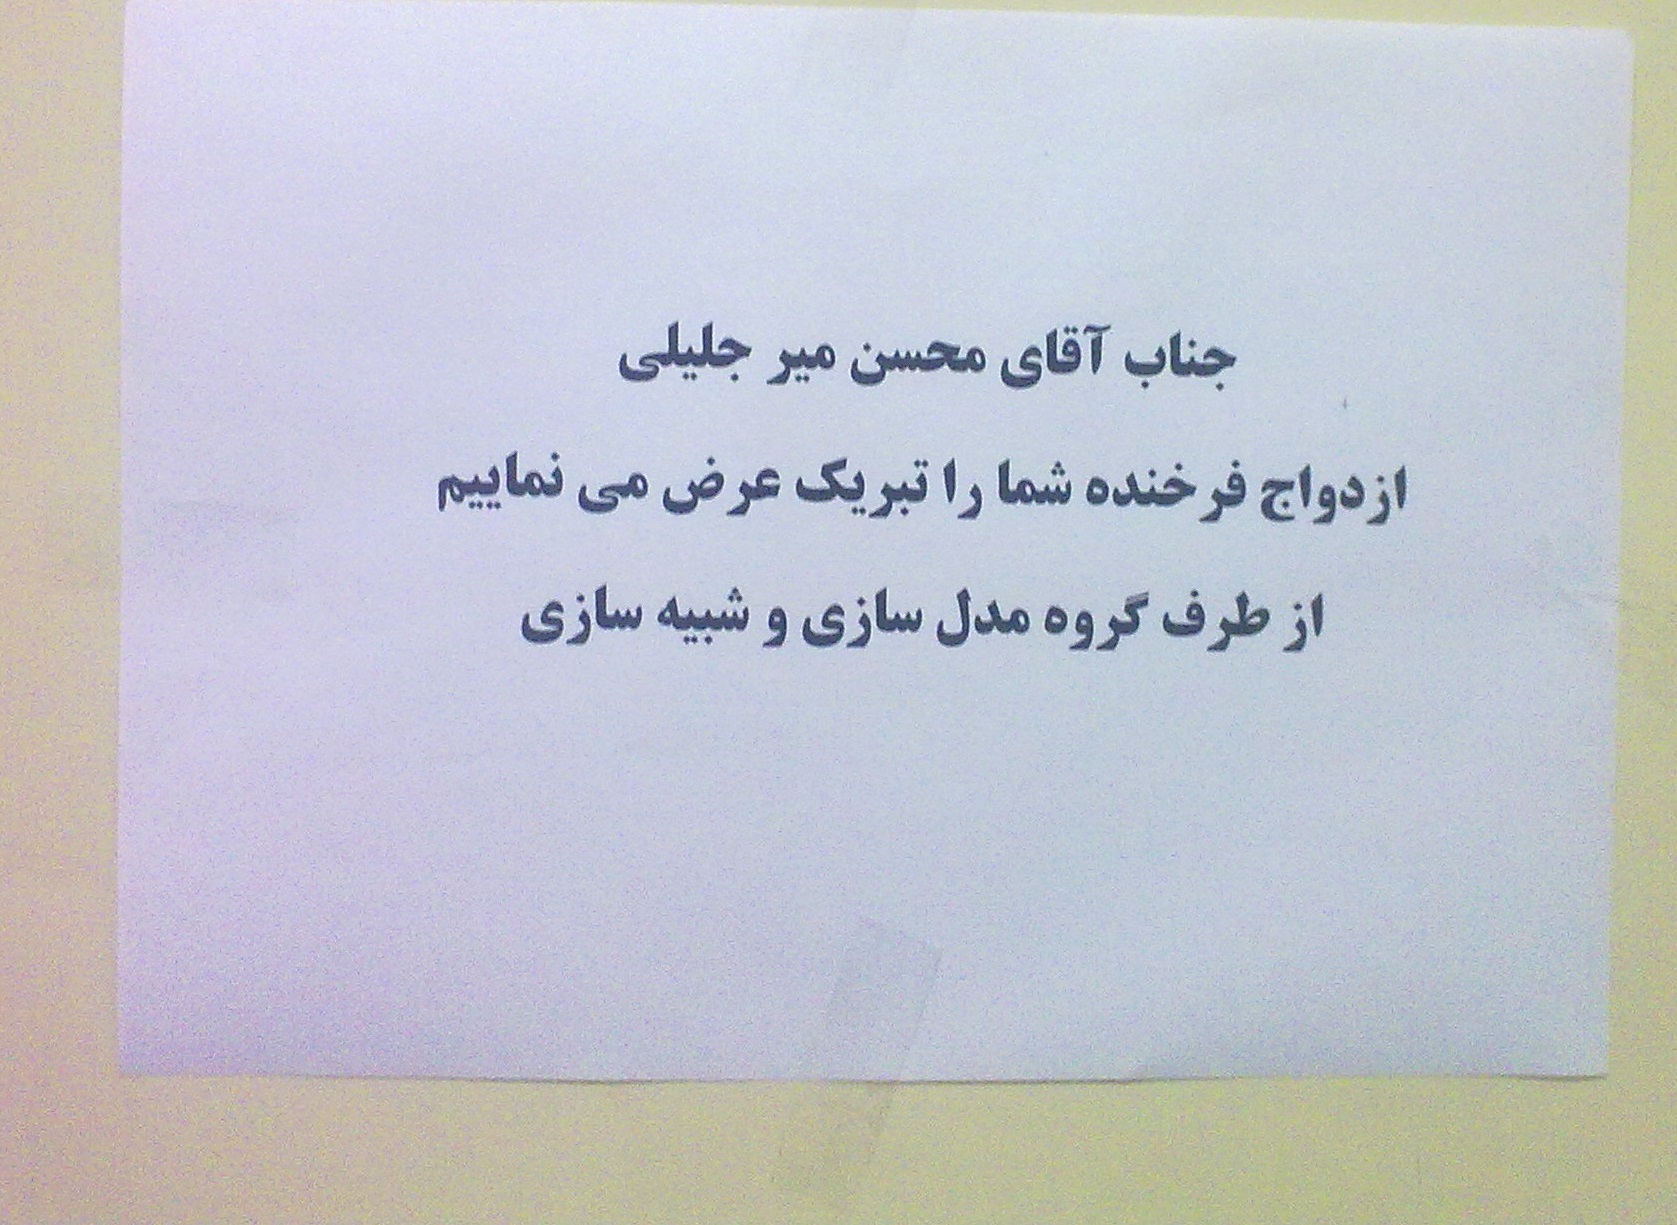 جناب آقای محسن میر جلیلی
ازدواج فرخنده شما را تبریک عرض می نماییم
از طرف گروه مدل سازی و شبیه سازی